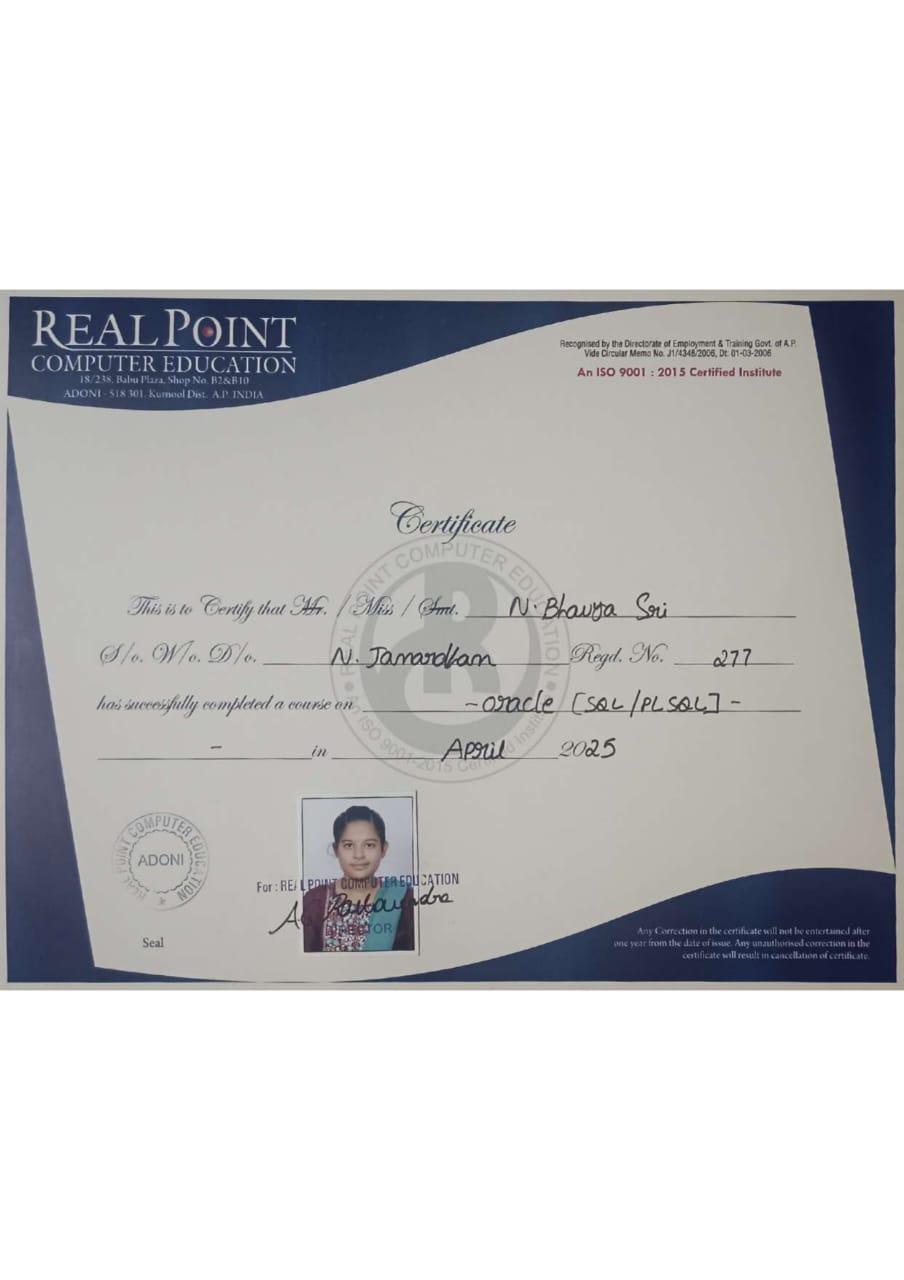 REAL POINT
COMPUTER EDUCATION
18/238, Babu Plaza, Shop No. B2&B10
ADONI - 518 301. Kurnool Dist. A.P. INDIA
Recognised by the Directorate of Employment & Training Govt. of A.P.
Vide Circular Memo No. J1/4348/2006, Dt: 01-03-2006
An ISO 9001 : 2015 Certified Institute
Certificate
REAL POINT COMPUTER EDUCATION
An ISO 9001-2015 Certified Institute
This is to Certify that Mr. / Miss / Smt. N. Bhavya Sri
S/o. W/o. D/o. N. Janardhan Regd. No. 277
has successfully completed a course on - oracle [SQL/PLSQL] -
- in April 2025
REAL POINT COMPUTER EDUCATION
ADONI
Seal
For : REAL POINT COMPUTER EDUCATION
DIRECTOR
Any Correction in the certificate will not be entertained after
one year from the date of issue. Any unauthorised correction in the
certificate will result in cancellation of certificate.